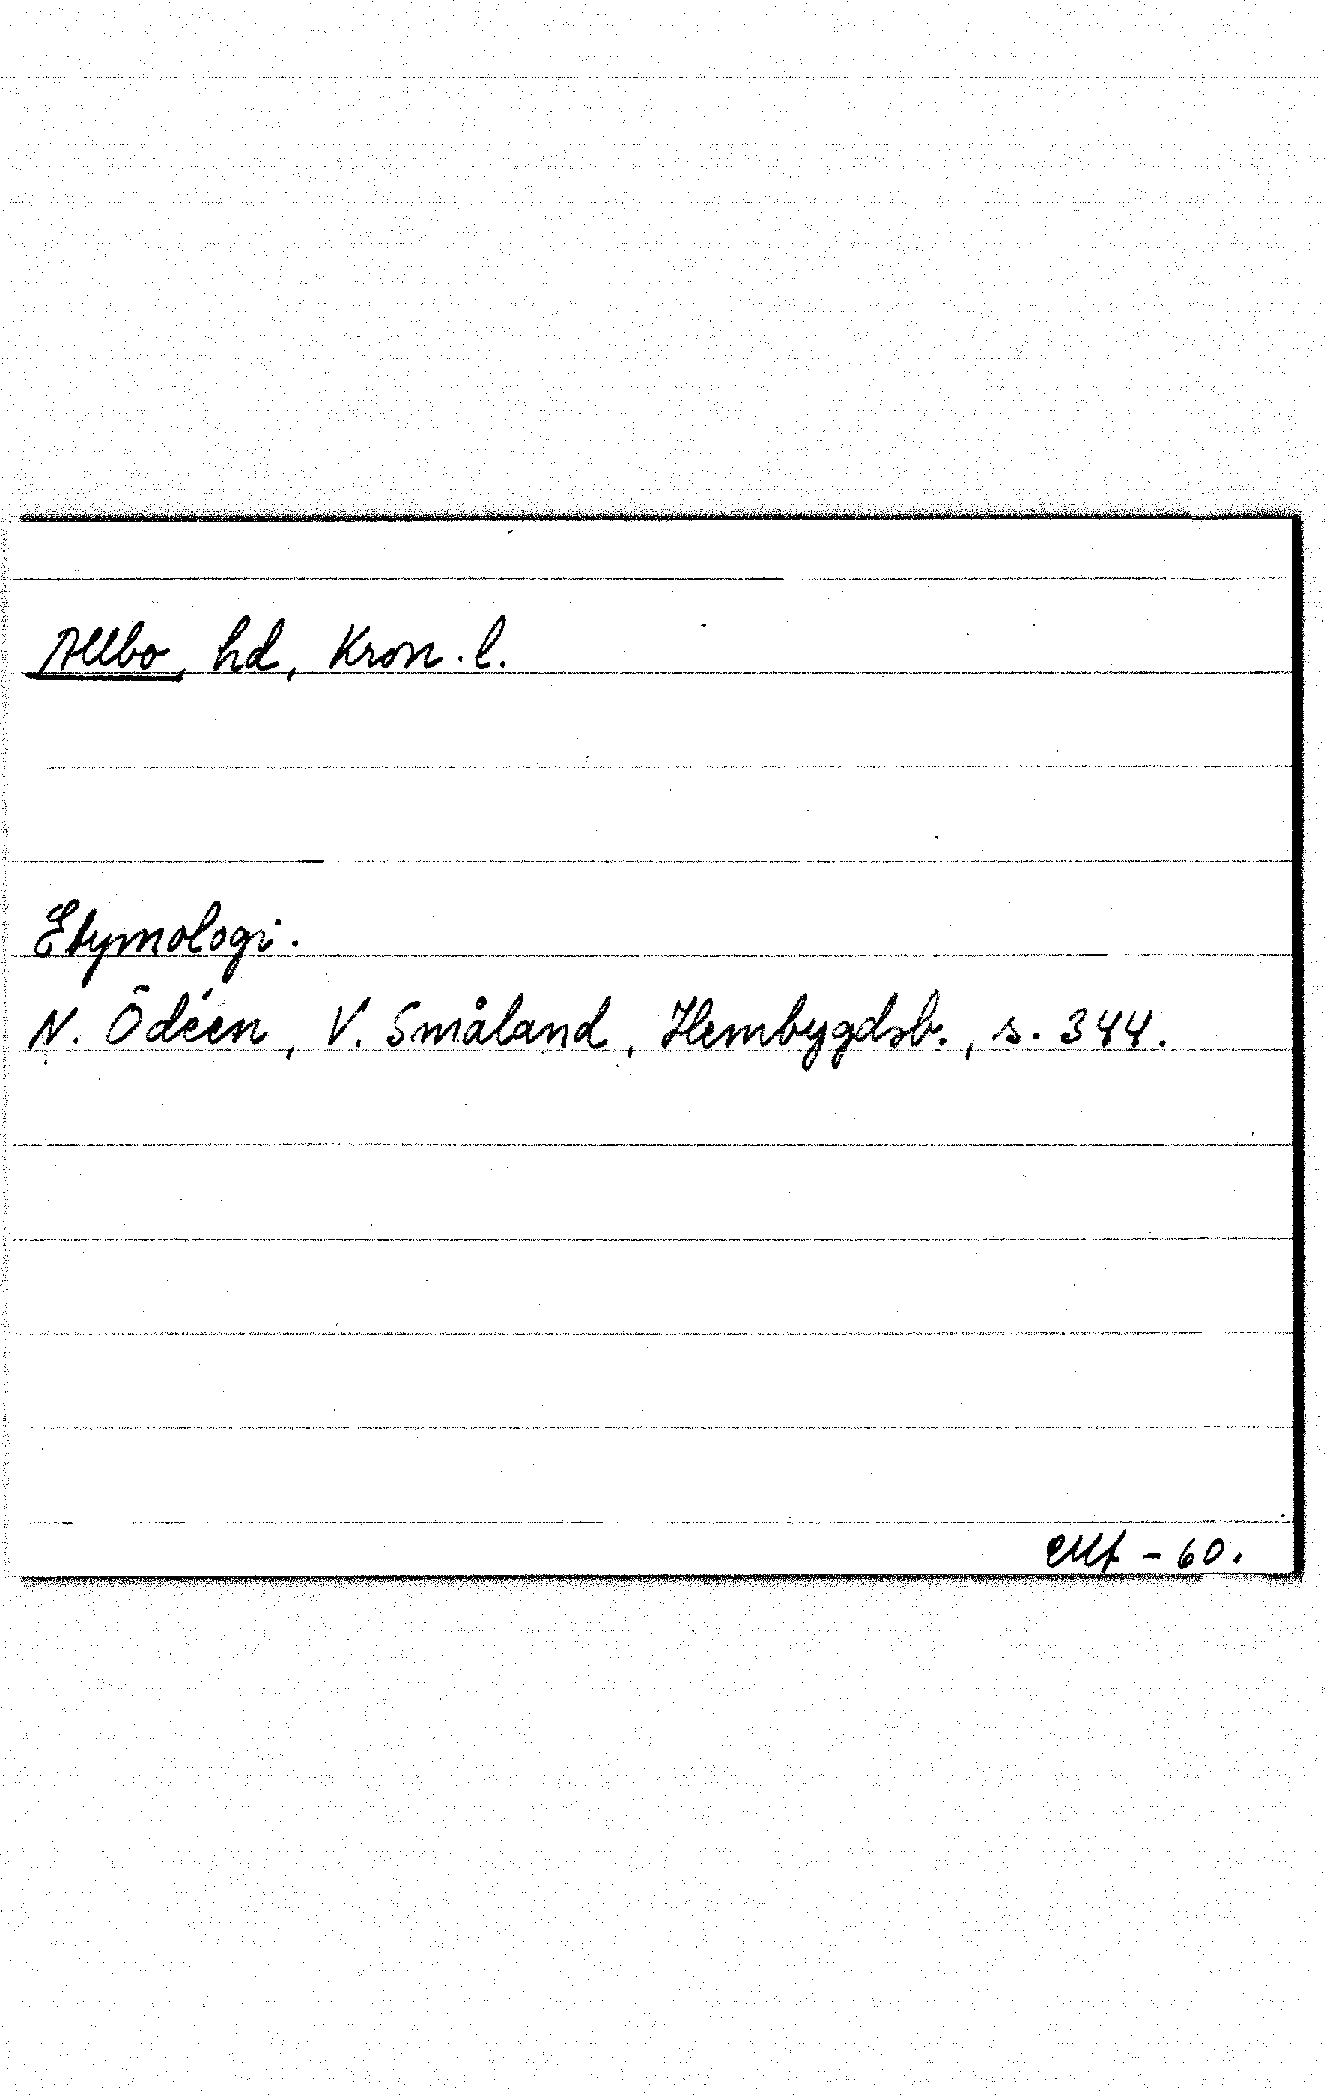 Allbo, hd, Kron. l.
Etymologi.
N. Ödéen, V. Småland, Hembygdsb., s. 344.
-60.